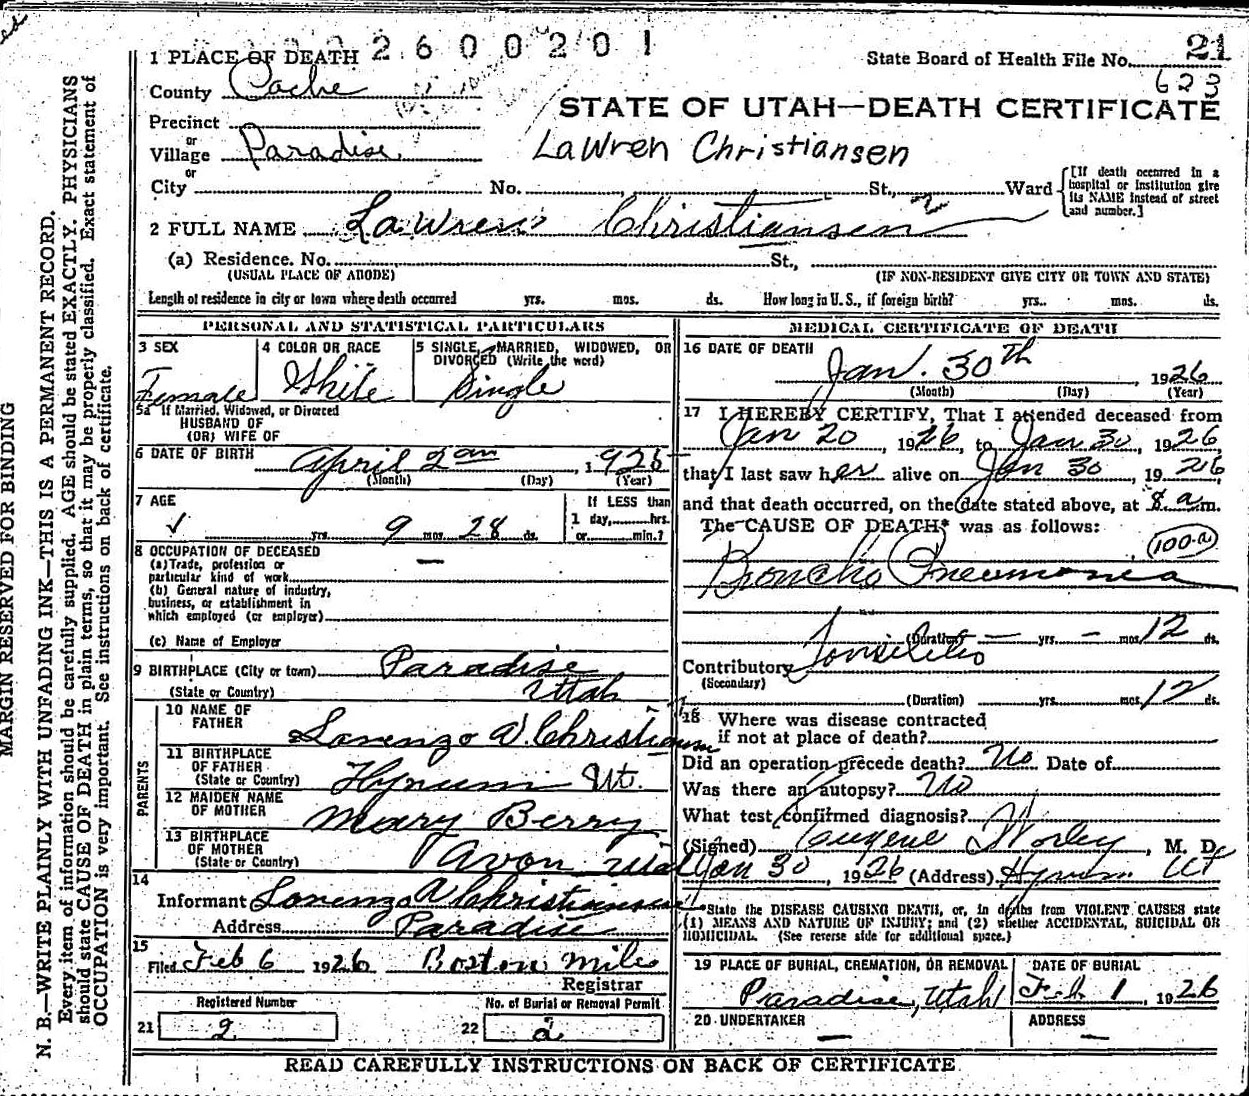 2600201
21
1 PLACE OF DEATH
State Board of Health File No.
623
County Cache
STATE OF UTAH—DEATH CERTIFICATE
Precinct
or
Village Paradise
LaWren Christiansen
or
City No. St., Ward
[If death occurred in a hospital or institution give its NAME instead of street and number.]
2 FULL NAME LaWren Christiansen
(a) Residence. No. St.,
(USUAL PLACE OF ABODE) (IF NON-RESIDENT GIVE CITY OR TOWN AND STATE)
Length of residence in city or town where death occurred yrs. mos. ds. How long in U. S., if foreign birth? yrs.. mos. ds.
PERSONAL AND STATISTICAL PARTICULARS
3 SEX
Female
4 COLOR OR RACE
White
5 SINGLE, MARRIED, WIDOWED, OR DIVORCED (Write the word)
Single
5a If Married, Widowed, or Divorced
HUSBAND OF
(OR) WIFE OF
6 DATE OF BIRTH April 2nd, 1925
(Month) (Day) (Year)
7 AGE
yrs. 9 mos. 28 ds.
If LESS than
1 day, hrs.
or min.?
8 OCCUPATION OF DECEASED
(a) Trade, profession or
particular kind of work
(b) General nature of industry,
business, or establishment in
which employed (or employer)
(c) Name of Employer
9 BIRTHPLACE (City or town) Paradise
(State or Country) Utah
PARENTS
10 NAME OF
FATHER Lorenzo A. Christiansen
11 BIRTHPLACE
OF FATHER
(State or Country) Hyrum Ut.
12 MAIDEN NAME
OF MOTHER Mary Berry
13 BIRTHPLACE
OF MOTHER
(State or Country) Avon Utah
14
Informant Lorenzo A Christiansen
Address Paradise
15
Filed Feb 6 1926
Registrar
Registered Number
21 2
No. of Burial or Removal Permit
22 2
MEDICAL CERTIFICATE OF DEATH
16 DATE OF DEATH
Jan. 30th, 1926
(Month) (Day) (Year)
17 I HEREBY CERTIFY, That I attended deceased from
Jan 20, 1926, to Jan 30, 1926
that I last saw her alive on Jan 30, 1926,
and that death occurred, on the date stated above, at 8 a m.
The CAUSE OF DEATH* was as follows:
100-a
Broncho Pneumonea
(Duration) — yrs. — mos. 12 ds.
Contributory Tonsilitis
(Secondary)
(Duration) yrs. mos. 12 ds.
18 Where was disease contracted
if not at place of death?
Did an operation precede death? No Date of
Was there an autopsy? No
What test confirmed diagnosis?
(Signed) Eugene Worley, M. D.
Jan 30, 1926 (Address) Hyrum Ut
*State the DISEASE CAUSING DEATH, or, in deaths from VIOLENT CAUSES state
(1) MEANS AND NATURE OF INJURY; and (2) whether ACCIDENTAL, SUICIDAL OR
HOMICIDAL. (See reverse side for additional space.)
19 PLACE OF BURIAL, CREMATION, OR REMOVAL
Paradise, Utah
DATE OF BURIAL
Feb 1, 1926
20 UNDERTAKER
—
ADDRESS
—
READ CAREFULLY INSTRUCTIONS ON BACK OF CERTIFICATE
MARGIN RESERVED FOR BINDING
N. B.—WRITE PLAINLY WITH UNFADING INK—THIS IS A PERMANENT RECORD.
Every item of information should be carefully supplied. AGE should be stated EXACTLY. PHYSICIANS
should state CAUSE OF DEATH in plain terms, so that it may be properly classified. Exact statement of
OCCUPATION is very important. See instructions on back of certificate.